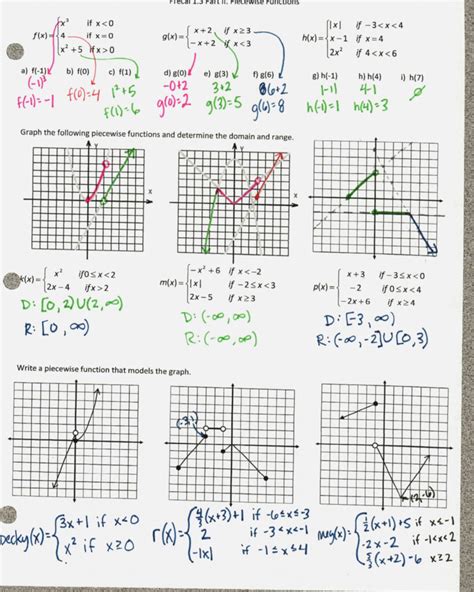 Precal 1.3 Part II: Piecewise Functions
f(x)= { x³ if x<0
4 if x=0
x²+5 if x>0
g(x)= { x+2, if x≥3
-x+2 if x<3
h(x)= { |x| if -3<x<4
x-1 if x=4
2x² if 4<x<6
a) f(-1) b) f(0) c) f(1) d) g(0) e) g(3) f) g(6) g) h(-1) h) h(4) i) h(7)
(-1)³ f(0)=4 1²+5 -0+2 3+2 6+2 |-1| 4-1 ∅
f(-1)=-1 f(1)=6 g(0)=2 g(3)=5 g(6)=8 h(-1)=1 h(4)=3
Graph the following piecewise functions and determine the domain and range.
Y
X
Y
X
k(x)= { x² if 0≤x<2
2x-4 if x>2
m(x)= { -x²+6 if x<-2
|x| if -2≤x<3
2x-5 if x≥3
p(x)= { x+3 if -3≤x<0
-2 if 0≤x<4
-2x+6 if x≥4
D: [0,2)U(2,∞)
R: [0,∞)
D: (-∞,∞)
R: (-∞,∞)
D: [-3,∞)
R: (-∞,-2]U[0,3)
Write a piecewise function that models the graph.
(2,-6)
Decky(x)= { 3x+1 if x<0
x² if x≥0
r(x)= { (x+3)+1 if -6≤x≤-3
2 if -3<x<-1
-|x| if -1≤x≤4
(x+1)+5 if x≤-1
-2x-2 if -1<x<2
(x+2)-6 x≥2